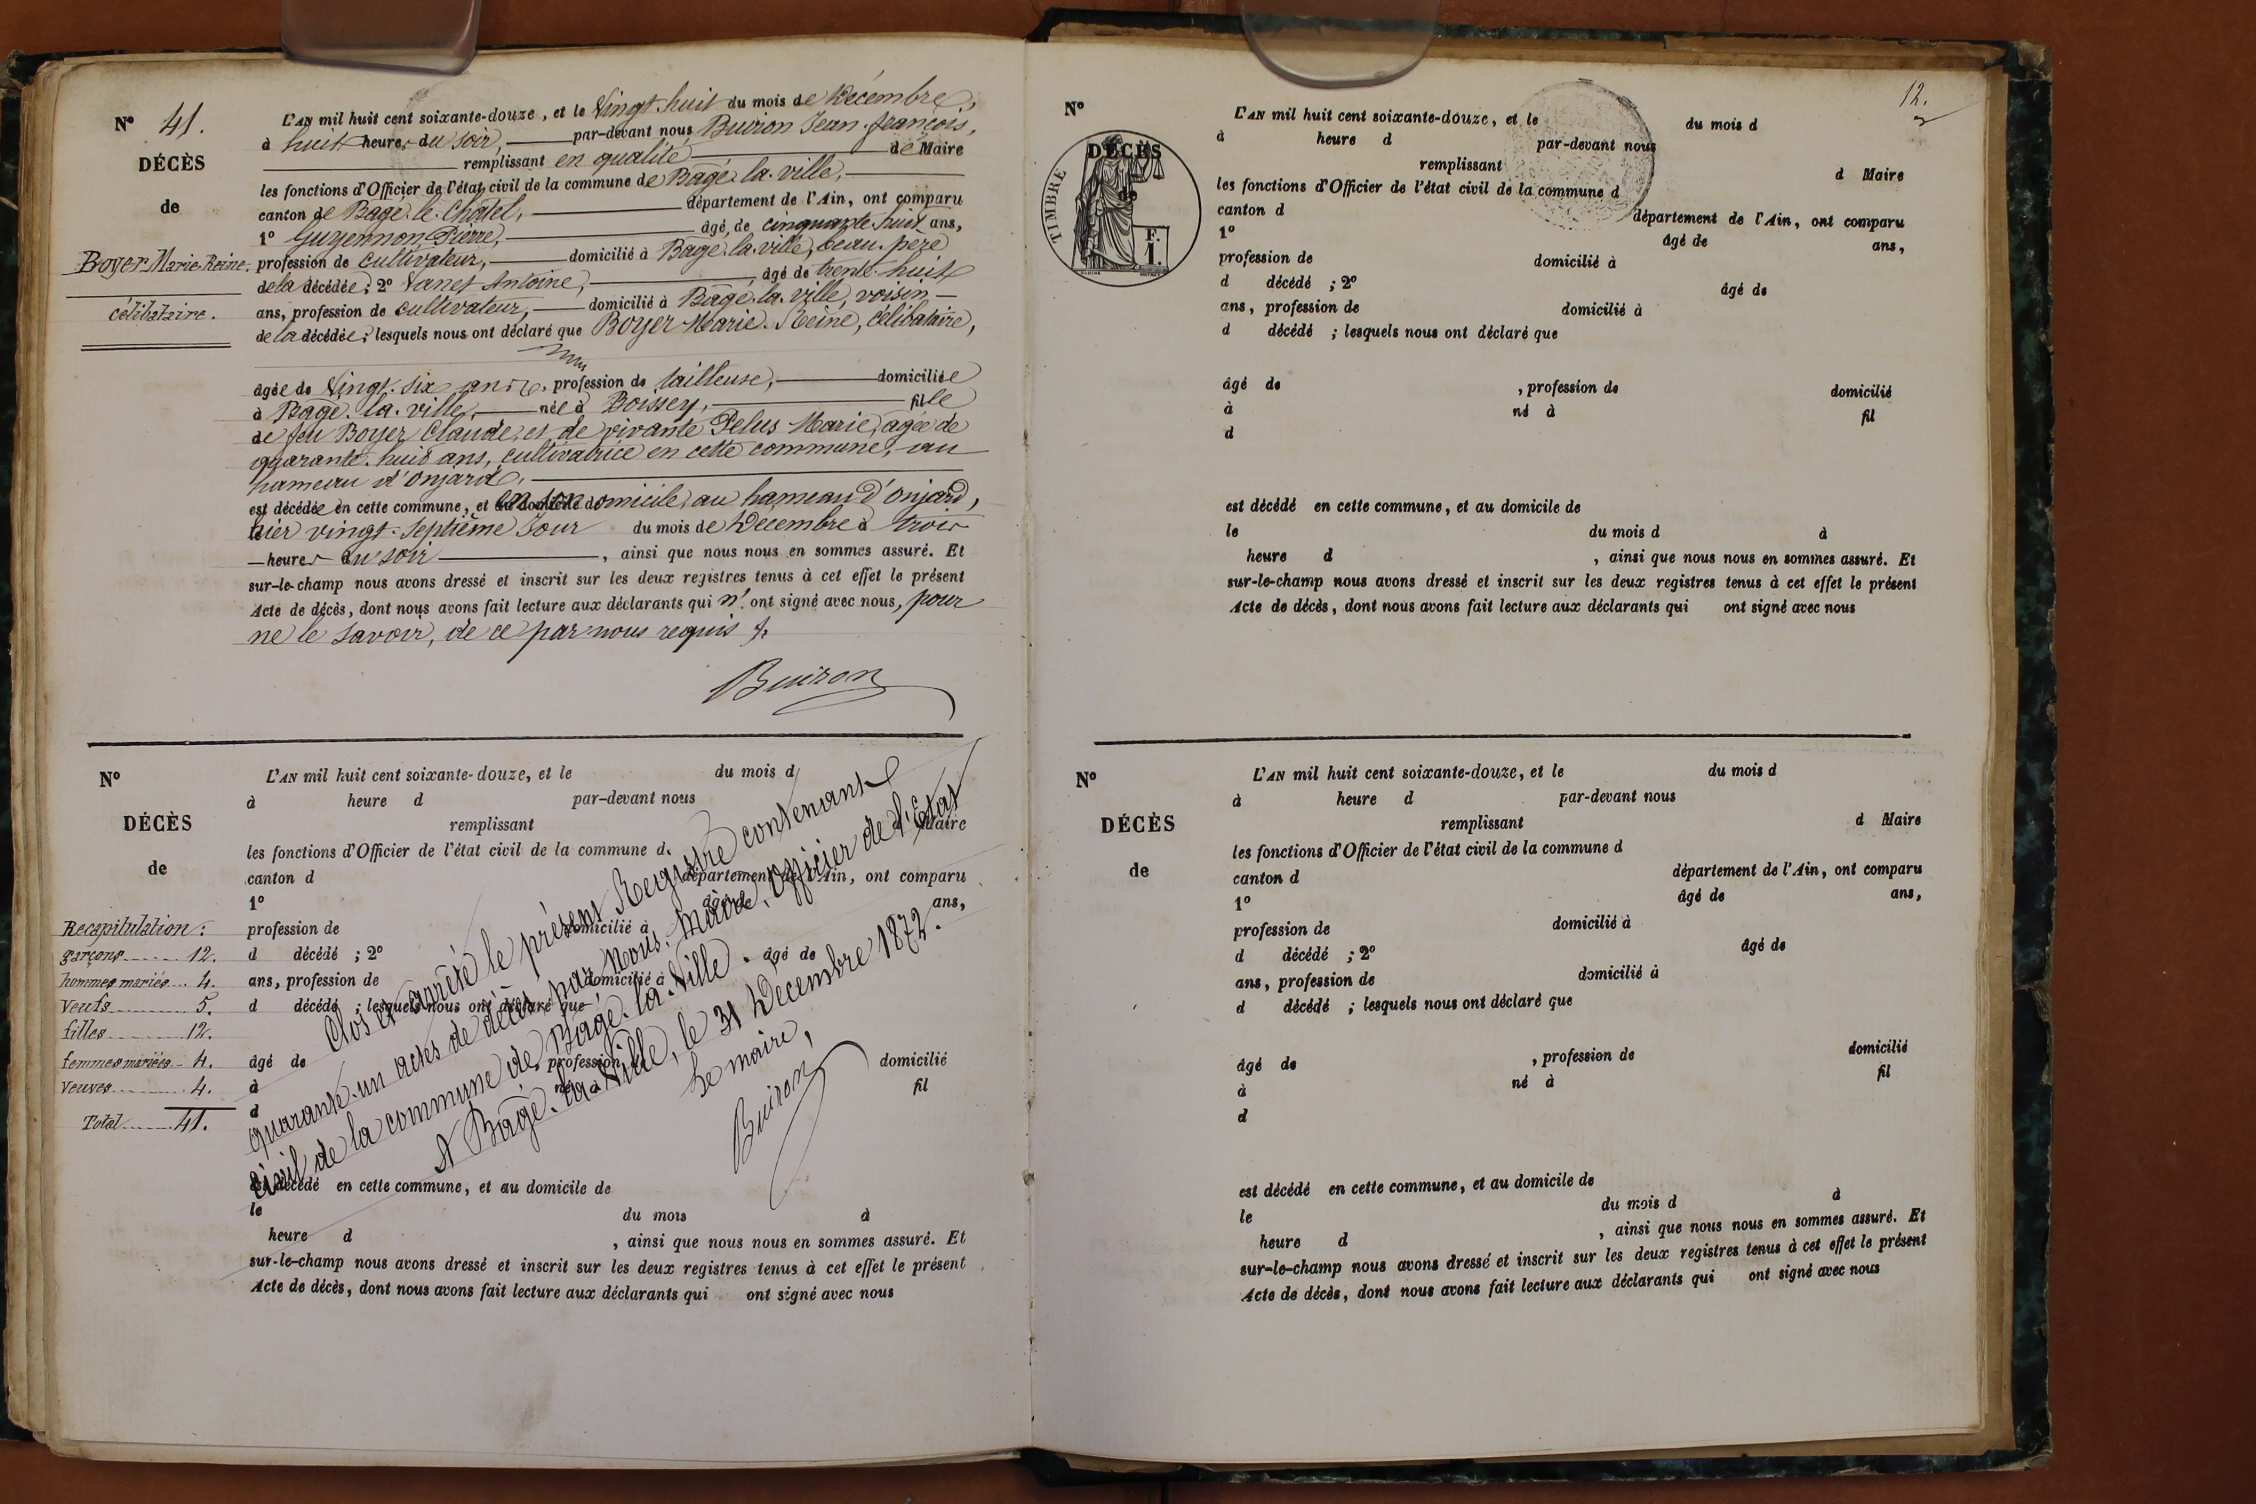 N° 41.
DÉCÈS
de
Boyer Marie-Reine.
célibataire.
L'AN mil huit cent soixante-douze, et le Vingt-huit du mois de Décembre,
à huit heures du soir, par-devant nous Buiron Jean-François,
remplissant en qualité de Maire
les fonctions d'Officier de l'état civil de la commune de Bagé-la-ville,
canton de Bagé-le-Châtel, département de l'Ain, ont comparu
1° Guyennon Pierre, âgé de cinquante-huit ans,
profession de cultivateur, domicilié à Bagé-la-ville, beau-père
de la décédée; 2° Vanet Antoine, âgé de trente-huit
ans, profession de cultivateur, domicilié à Bagé-la-ville, voisin
de la décédée; lesquels nous ont déclaré que Boyer Marie-Reine, célibataire,
âgée de Vingt-six ans, profession de tailleuse, domiciliée
à Bagé-la-ville, née à Boissey, fille
de feu Boyer Claude, et de vivante Pelus Marie, âgée de
quarante-huit ans, cultivatrice en cette commune, au
hameau d'Onjard,
est décédée en cette commune, et en son domicile, au hameau d'Onjard,
hier vingt-septième Jour du mois de Décembre à trois
heures du soir, ainsi que nous nous en sommes assuré. Et
sur-le-champ nous avons dressé et inscrit sur les deux registres tenus à cet effet le présent
Acte de décès, dont nous avons fait lecture aux déclarants qui n'ont signé avec nous, pour
ne le savoir, de ce par nous requis
Buiron
N°
DÉCÈS
de
Recapitulation:
garçons 12.
hommes mariés 4.
Veufs 5.
filles 12.
femmes mariées 4.
Veuves 4.
Total 41.
L'AN mil huit cent soixante-douze, et le du mois d
à heure d par-devant nous
remplissant d Maire
les fonctions d'Officier de l'état civil de la commune d
canton d département de l'Ain, ont comparu
1° âgé de ans,
profession de domicilié à
d décédé ; 2° âgé de
ans, profession de domicilié à
d décédé ; lesquels nous ont déclaré que
âgé de , profession de domicilié
à né à fil
d
Clos et arrêté le présent Registre contenant
quarante-un actes de décès par Nous, Maire, Officier de l'Etat
civil de la commune de Bagé-la-Ville.
A Bagé-la-Ville, le 31 Décembre 1872.
Le maire,
Buiron
est décédé en cette commune, et au domicile de
le du mois d à
heure d , ainsi que nous nous en sommes assuré. Et
sur-le-champ nous avons dressé et inscrit sur les deux registres tenus à cet effet le présent
Acte de décès, dont nous avons fait lecture aux déclarants qui ont signé avec nous
12.
N°
TIMBRE
DÉCÈS
de
F.
1.
L'AN mil huit cent soixante-douze, et le du mois d
à heure d par-devant nous
remplissant d Maire
les fonctions d'Officier de l'état civil de la commune d
canton d département de l'Ain, ont comparu
1° âgé de ans,
profession de domicilié à
d décédé ; 2° âgé de
ans, profession de domicilié à
d décédé ; lesquels nous ont déclaré que
âgé de , profession de domicilié
à né à fil
d
est décédé en cette commune, et au domicile de
le du mois d à
heure d , ainsi que nous nous en sommes assuré. Et
sur-le-champ nous avons dressé et inscrit sur les deux registres tenus à cet effet le présent
Acte de décès, dont nous avons fait lecture aux déclarants qui ont signé avec nous
N°
DÉCÈS
de
L'AN mil huit cent soixante-douze, et le du mois d
à heure d par-devant nous
remplissant d Maire
les fonctions d'Officier de l'état civil de la commune d
canton d département de l'Ain, ont comparu
1° âgé de ans,
profession de domicilié à
d décédé ; 2° âgé de
ans, profession de domicilié à
d décédé ; lesquels nous ont déclaré que
âgé de , profession de domicilié
à né à fil
d
est décédé en cette commune, et au domicile de
le du mois d à
heure d , ainsi que nous nous en sommes assuré. Et
sur-le-champ nous avons dressé et inscrit sur les deux registres tenus à cet effet le présent
Acte de décès, dont nous avons fait lecture aux déclarants qui ont signé avec nous